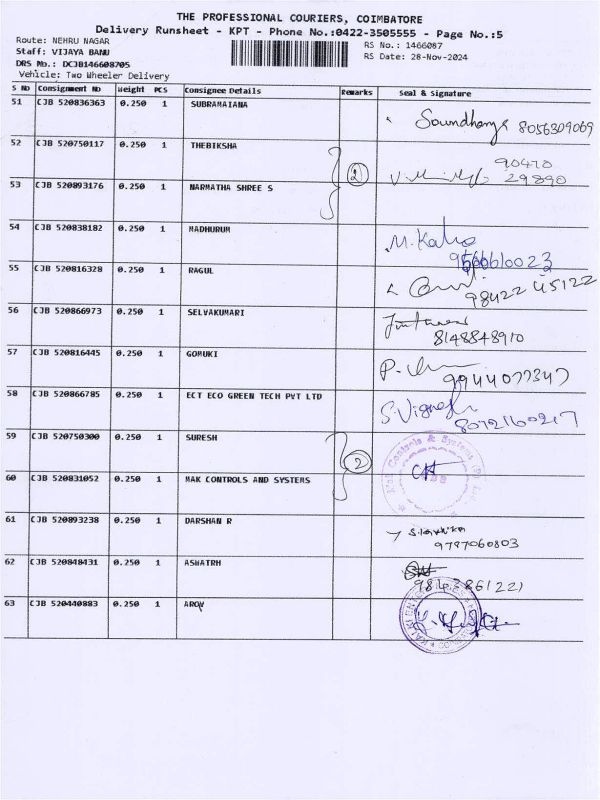 THE PROFESSIONAL COURIERS, COIMBATORE
Delivery Runsheet - KPT - Phone No.:0422-3505555 - Page No.:5
Route: NEHRU NAGAR
RS No.: 1466087
Staff: VIJAYA BANU
RS Date: 28-Nov-2024
DRS No.: DCJB146608705
Vehicle: Two Wheeler Delivery
S No Consignment No Weight PCS Consignee Details Remarks Seal & Signature
51 CJB 520836363 0.250 1 SUBRAMAIANA 8056309069
52 CJB 520750117 0.250 1 THEBIKSHA 2 90470
29890
53 CJB 520893176 0.250 1 NARMATHA SHREE S
54 CJB 520838182 0.250 1 MADHURUM M. Kala
55 CJB 520816328 0.250 1 RAGUL 98422 45122
56 CJB 520866973 0.250 1 SELVAKUMARI
8148848910
57 CJB 520816445 0.250 1 GOMUKI
9944077347
58 CJB 520866785 0.250 1 ECT ECO GREEN TECH PVT LTD S. Vignesh
8072160217
59 CJB 520750300 0.250 1 SURESH 2 Mak Controls & Systems
60 CJB 520831052 0.250 1 MAK CONTROLS AND SYSTEMS
61 CJB 520893238 0.250 1 DARSHAN R
9787060803
62 CJB 520848431 0.250 1 ASWATRH
63 CJB 520440883 0.250 1 AROV